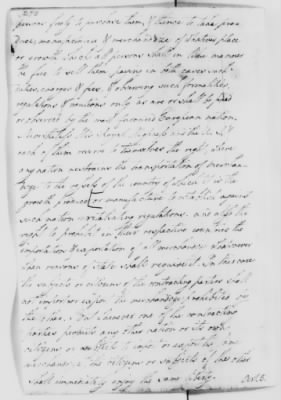 persons freely to purchase them, & thence to take pro-
duce, manufactures & merchandize of whatever place
or growth. And all persons shall in like manner
be free to sell them, paying in both cases such
duties, charges & fees, & observing such formalities,
regulations & cautions only as are or shall be paid
or observed by the most favoured European nation.
Nevertheless the Royal & the
each of them reserve to themselves the right, where
any nation restrains the transportation of merchan-
dize to the vessels of the country of which it is the
growth, produce or manufacture to establish against
such nation retaliating regulations. and also the
right to prohibit in their respective countries the
importation & exportation of all merchandize whatsoever
when reasons of state shall require it. In this case
the subjects or citizens of the contracting parties shall
not import or export the merchandize prohibited by
the other. But if one of the contracting
parties permits any other nation or it's own
citizens or subjects to import or export the same
merchandize the citizens or subjects of the other
shall immediately enjoy the same liberty.